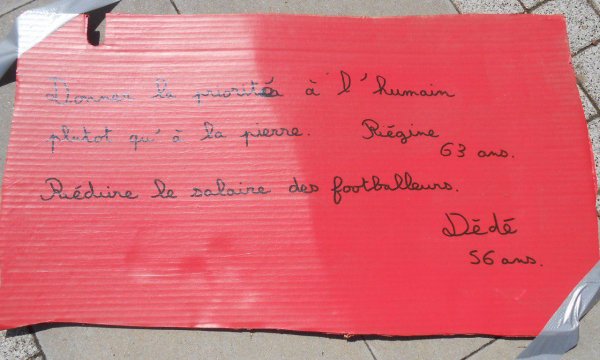 Donner la priorité à l'humain
plutot qu'à la pierre. Régine
63 ans.
Réduire le salaire des footballeurs.
Dédé
56 ans.